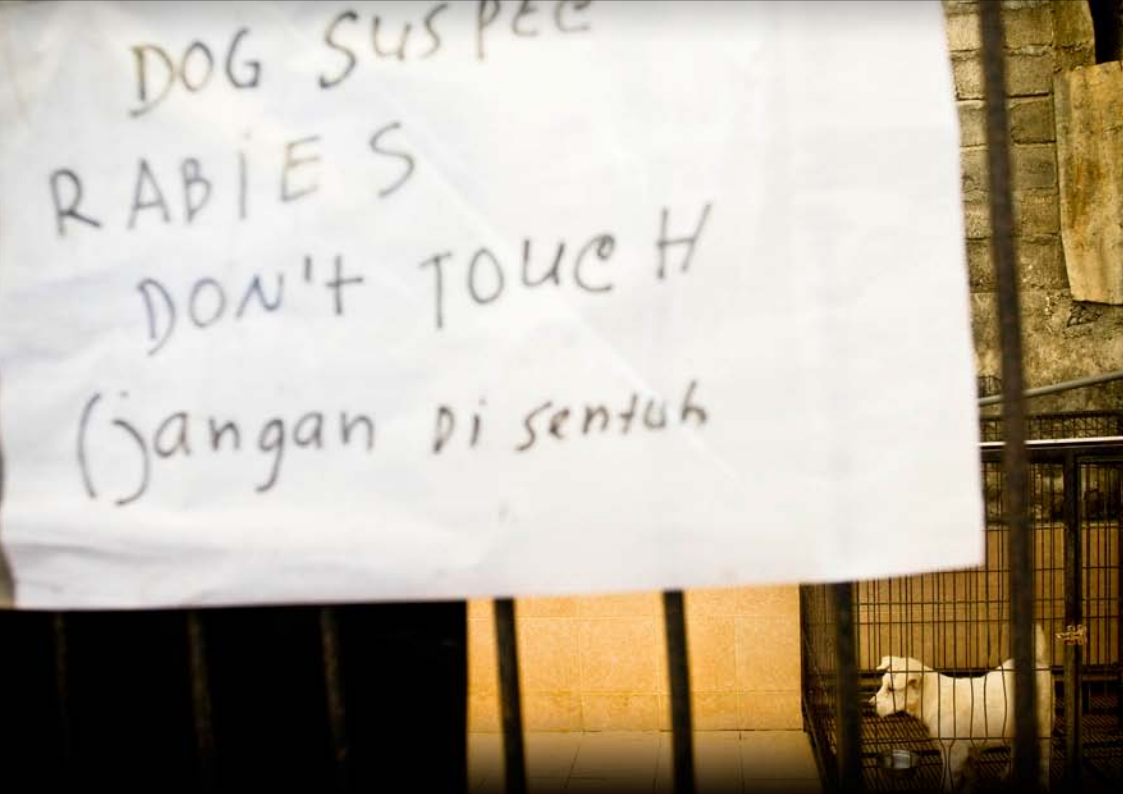 DOG SUSPEC
RABIES
DON't TOUCH
(jangan Di sentuh